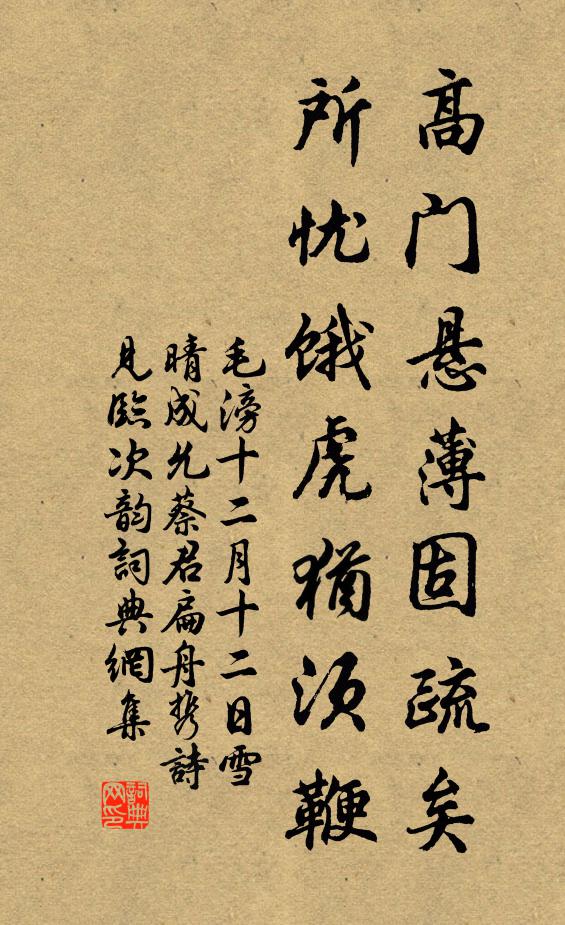 高门悬薄固疏矣
所忧饿虎犹须鞭
毛滂十二月十二日雪
晴成允蔡君扁舟携詩
見臨次韵詞典網集
詞典网印